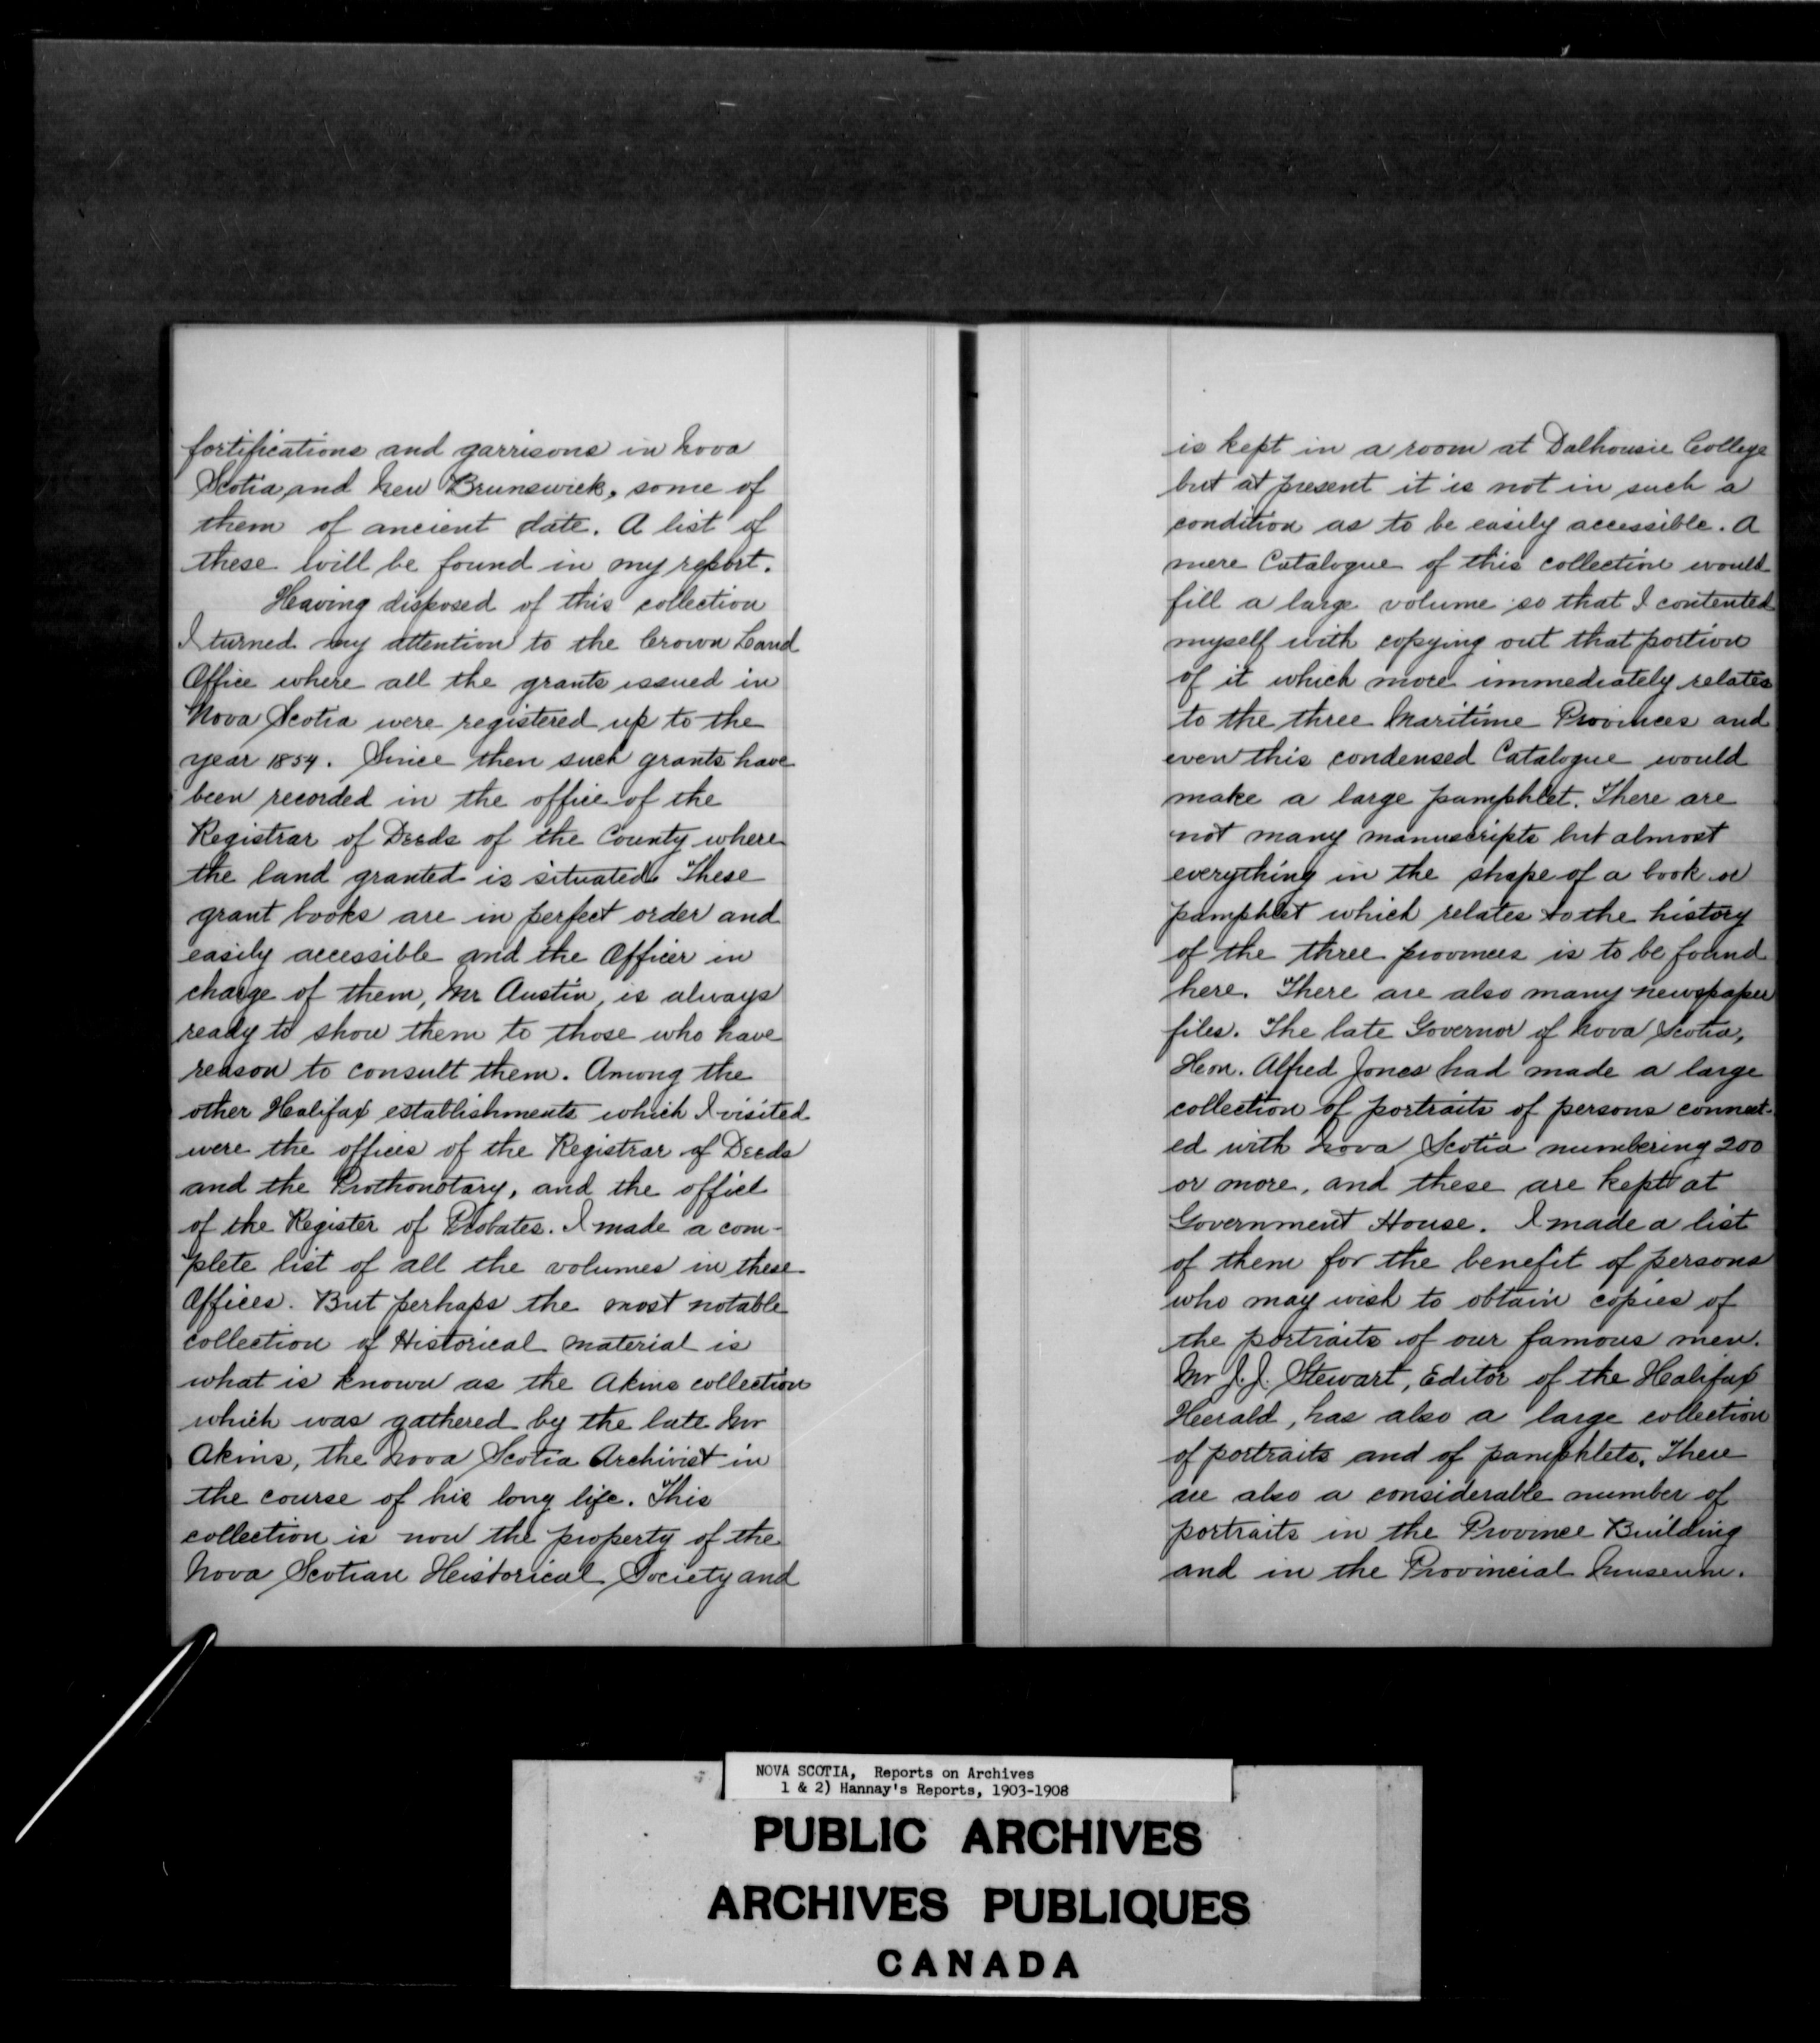 fortifications and garrisons in Nova
Scotia and New Brunswick, some of
them of ancient date. A list of
these will be found in my report.
Having disposed of this collection
I turned my attention to the Crown Land
Office where all the grants issued in
Nova Scotia were registered up to the
year 1854. Since then such grants have
been recorded in the office of the
Registrar of Deeds of the County where
the land granted is situated. These
grant books are in perfect order and
easily accessible and the Officer in
charge of them, Mr Austin, is always
ready to show them to those who have
reason to consult them. Among the
other Halifax establishments which I visited
were the offices of the Registrar of Deeds
and the Prothonotary, and the office
of the Register of Probates. I made a com-
plete list of all the volumes in these
Offices. But perhaps the most notable
collection of Historical material is
what is known as the Akins collection
which was gathered by the late Mr
Akins, the Nova Scotia Archivist in
the course of his long life. This
collection is now the property of the
Nova Scotian Historical Society and
is kept in a room at Dalhousie College
but at present it is not in such a
condition as to be easily accessible. A
mere Catalogue of this collection would
fill a large volume so that I contented
myself with copying out that portion
of it which more immediately relates
to the three Maritime Provinces and
even this condensed Catalogue would
make a large pamphlet. There are
not many manuscripts but almost
everything in the shape of a book or
pamphlet which relates to the history
of the three provinces is to be found
here. There are also many newspaper
files. The late Governor of Nova Scotia,
Hon. Alfred Jones had made a large
collection of portraits of persons connect-
ed with Nova Scotia numbering 200
or more, and these are kept at
Government House. I made a list
of them for the benefit of persons
who may wish to obtain copies of
the portraits of our famous men.
Mr J. J. Stewart, Editor of the Halifax
Herald, has also a large collection
of portraits and of pamphlets. There
are also a considerable number of
portraits in the Province Building
and in the Provincial Museum.
NOVA SCOTIA, Reports on Archives
1 & 2) Hannay's Reports, 1903-1908
PUBLIC ARCHIVES
ARCHIVES PUBLIQUES
CANADA